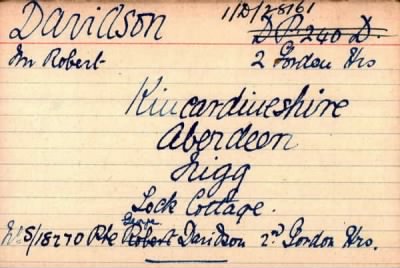 Davidson 1/D/28161
D.P. 240 D.
Mr Robert 2 Gordon Hrs
Kincardineshire
Aberdeen
Nigg
Lock Cottage.
George
No S/18270 Pte Robert Davidson 2nd Gordon Hrs.